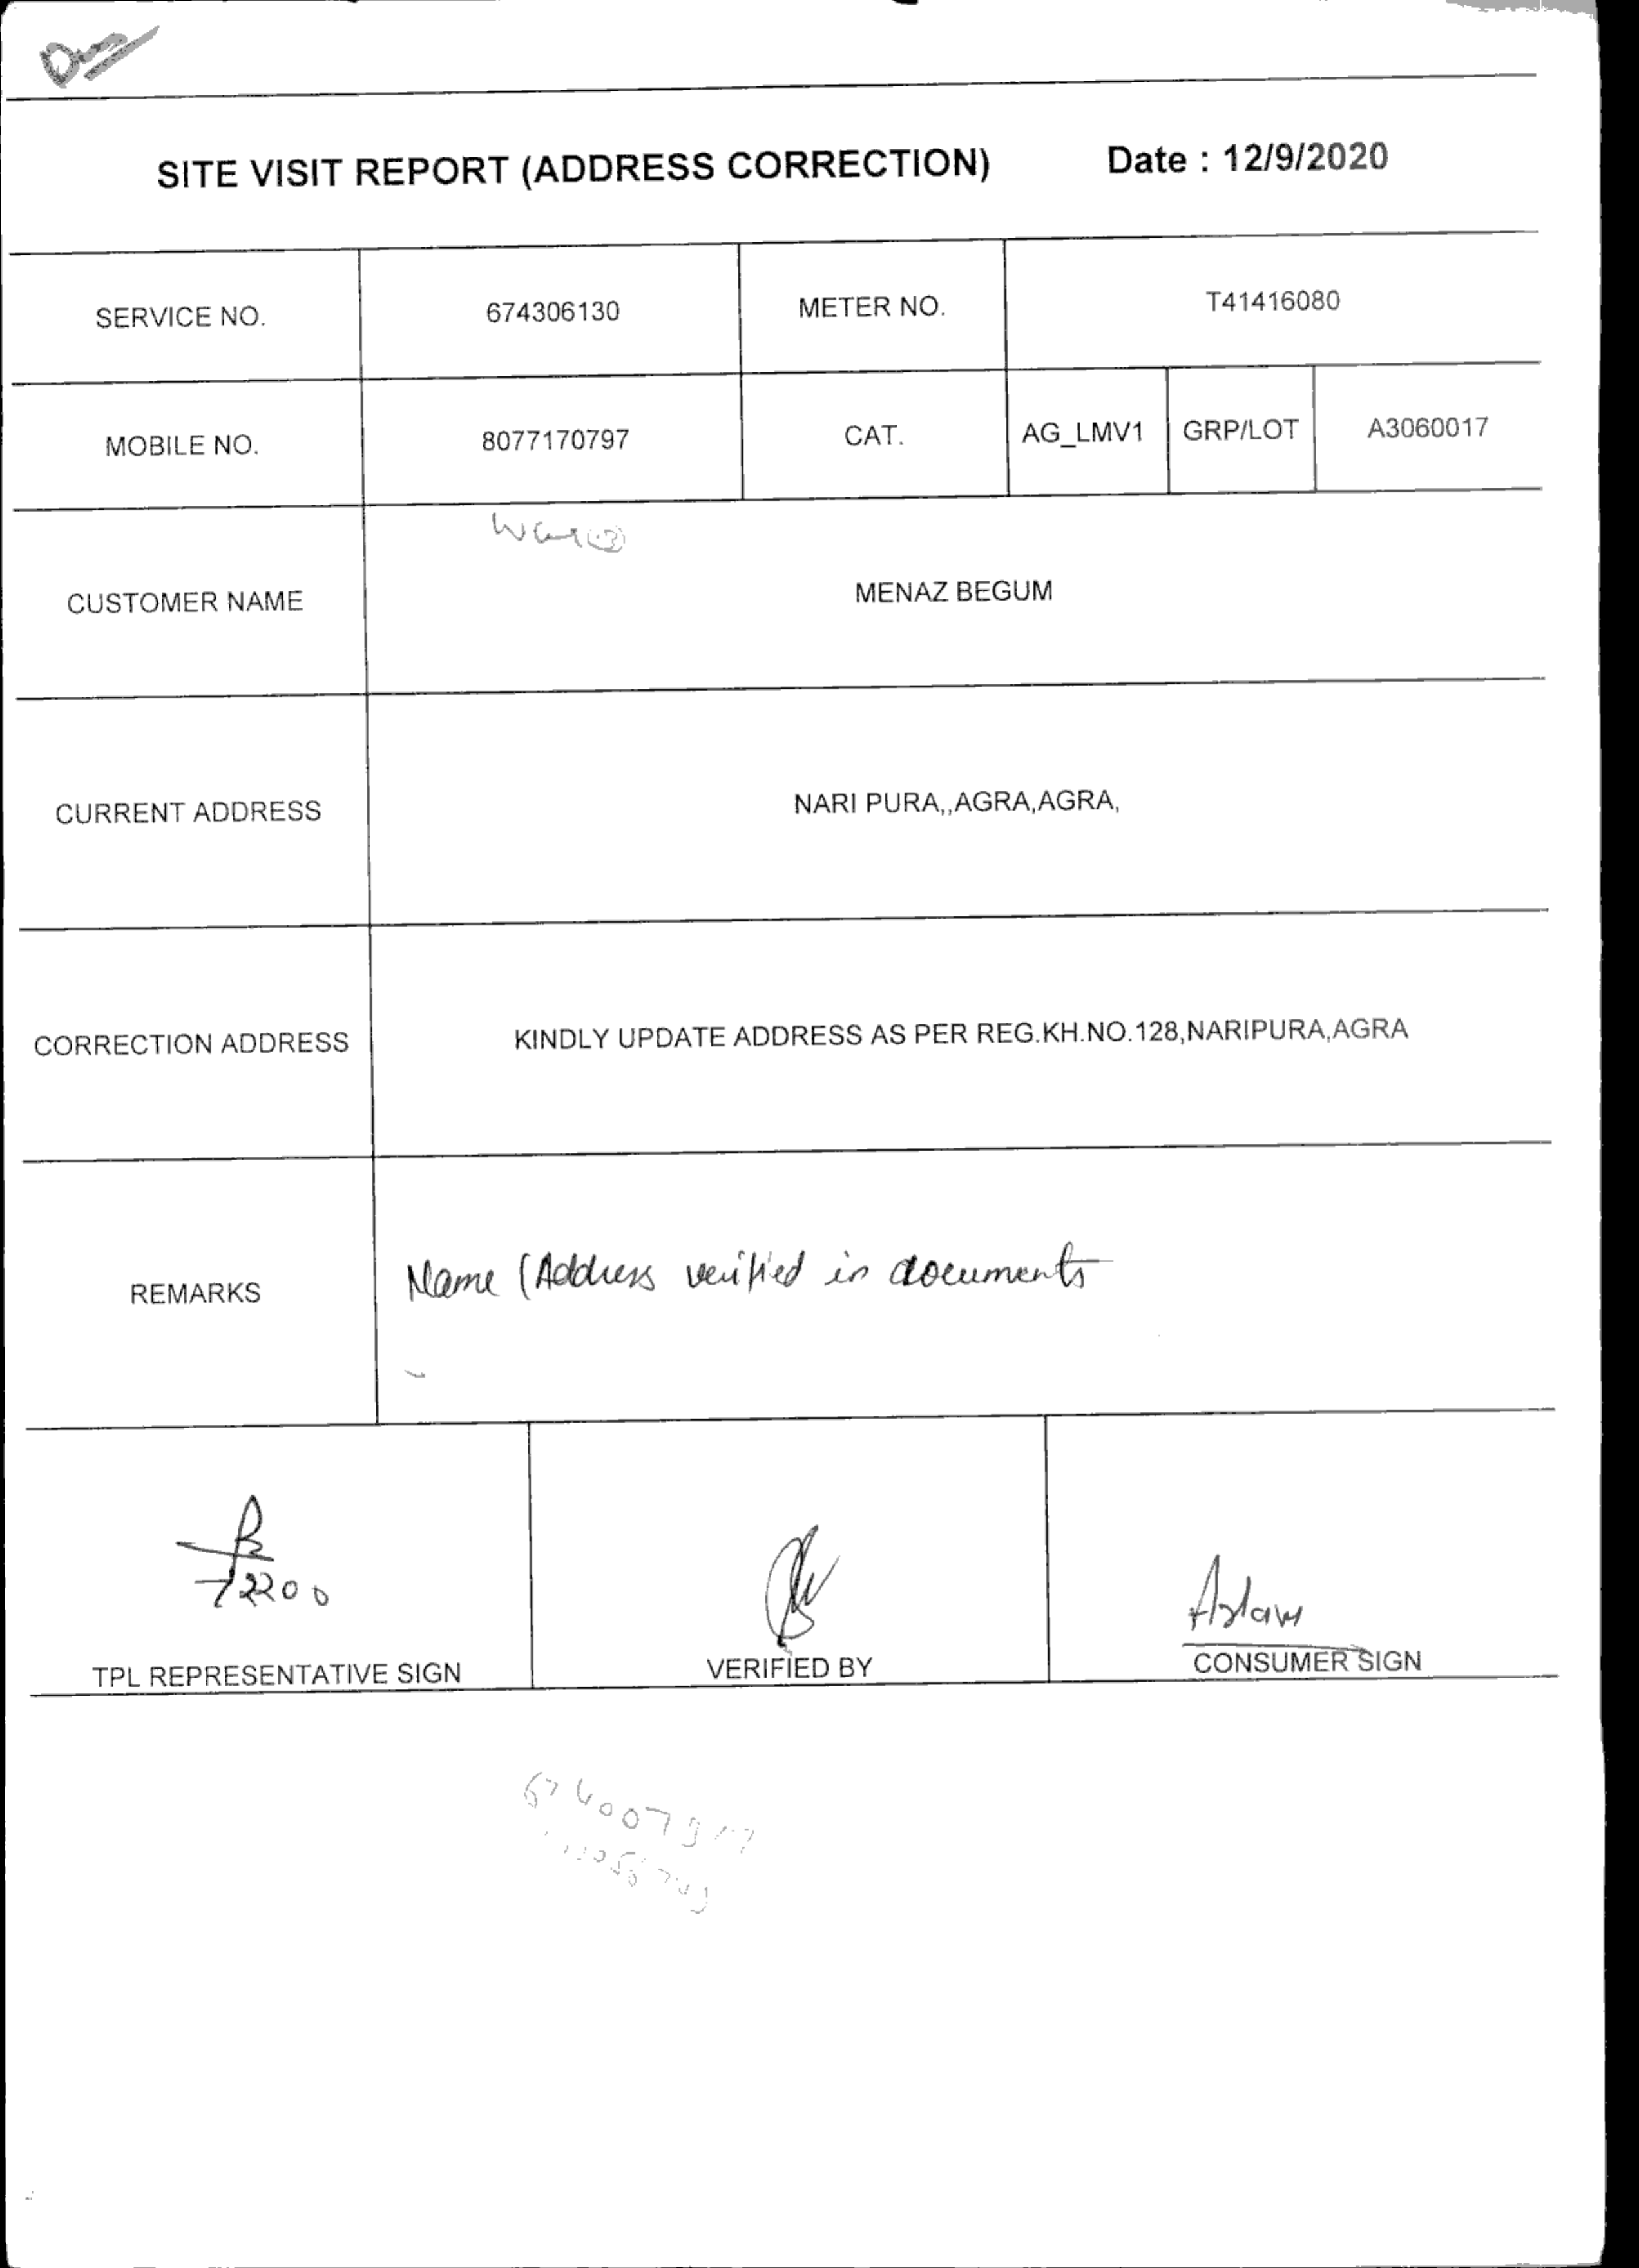 SITE VISIT REPORT (ADDRESS CORRECTION) Date : 12/9/2020
SERVICE NO. 674306130 METER NO. T41416080
MOBILE NO. 8077170797 CAT. AG_LMV1 GRP/LOT A3060017
CUSTOMER NAME MENAZ BEGUM
CURRENT ADDRESS NARI PURA,,AGRA,AGRA,
CORRECTION ADDRESS KINDLY UPDATE ADDRESS AS PER REG.KH.NO.128,NARIPURA,AGRA
REMARKS Name (Address verified in documents
72200 Aslam
TPL REPRESENTATIVE SIGN VERIFIED BY CONSUMER SIGN